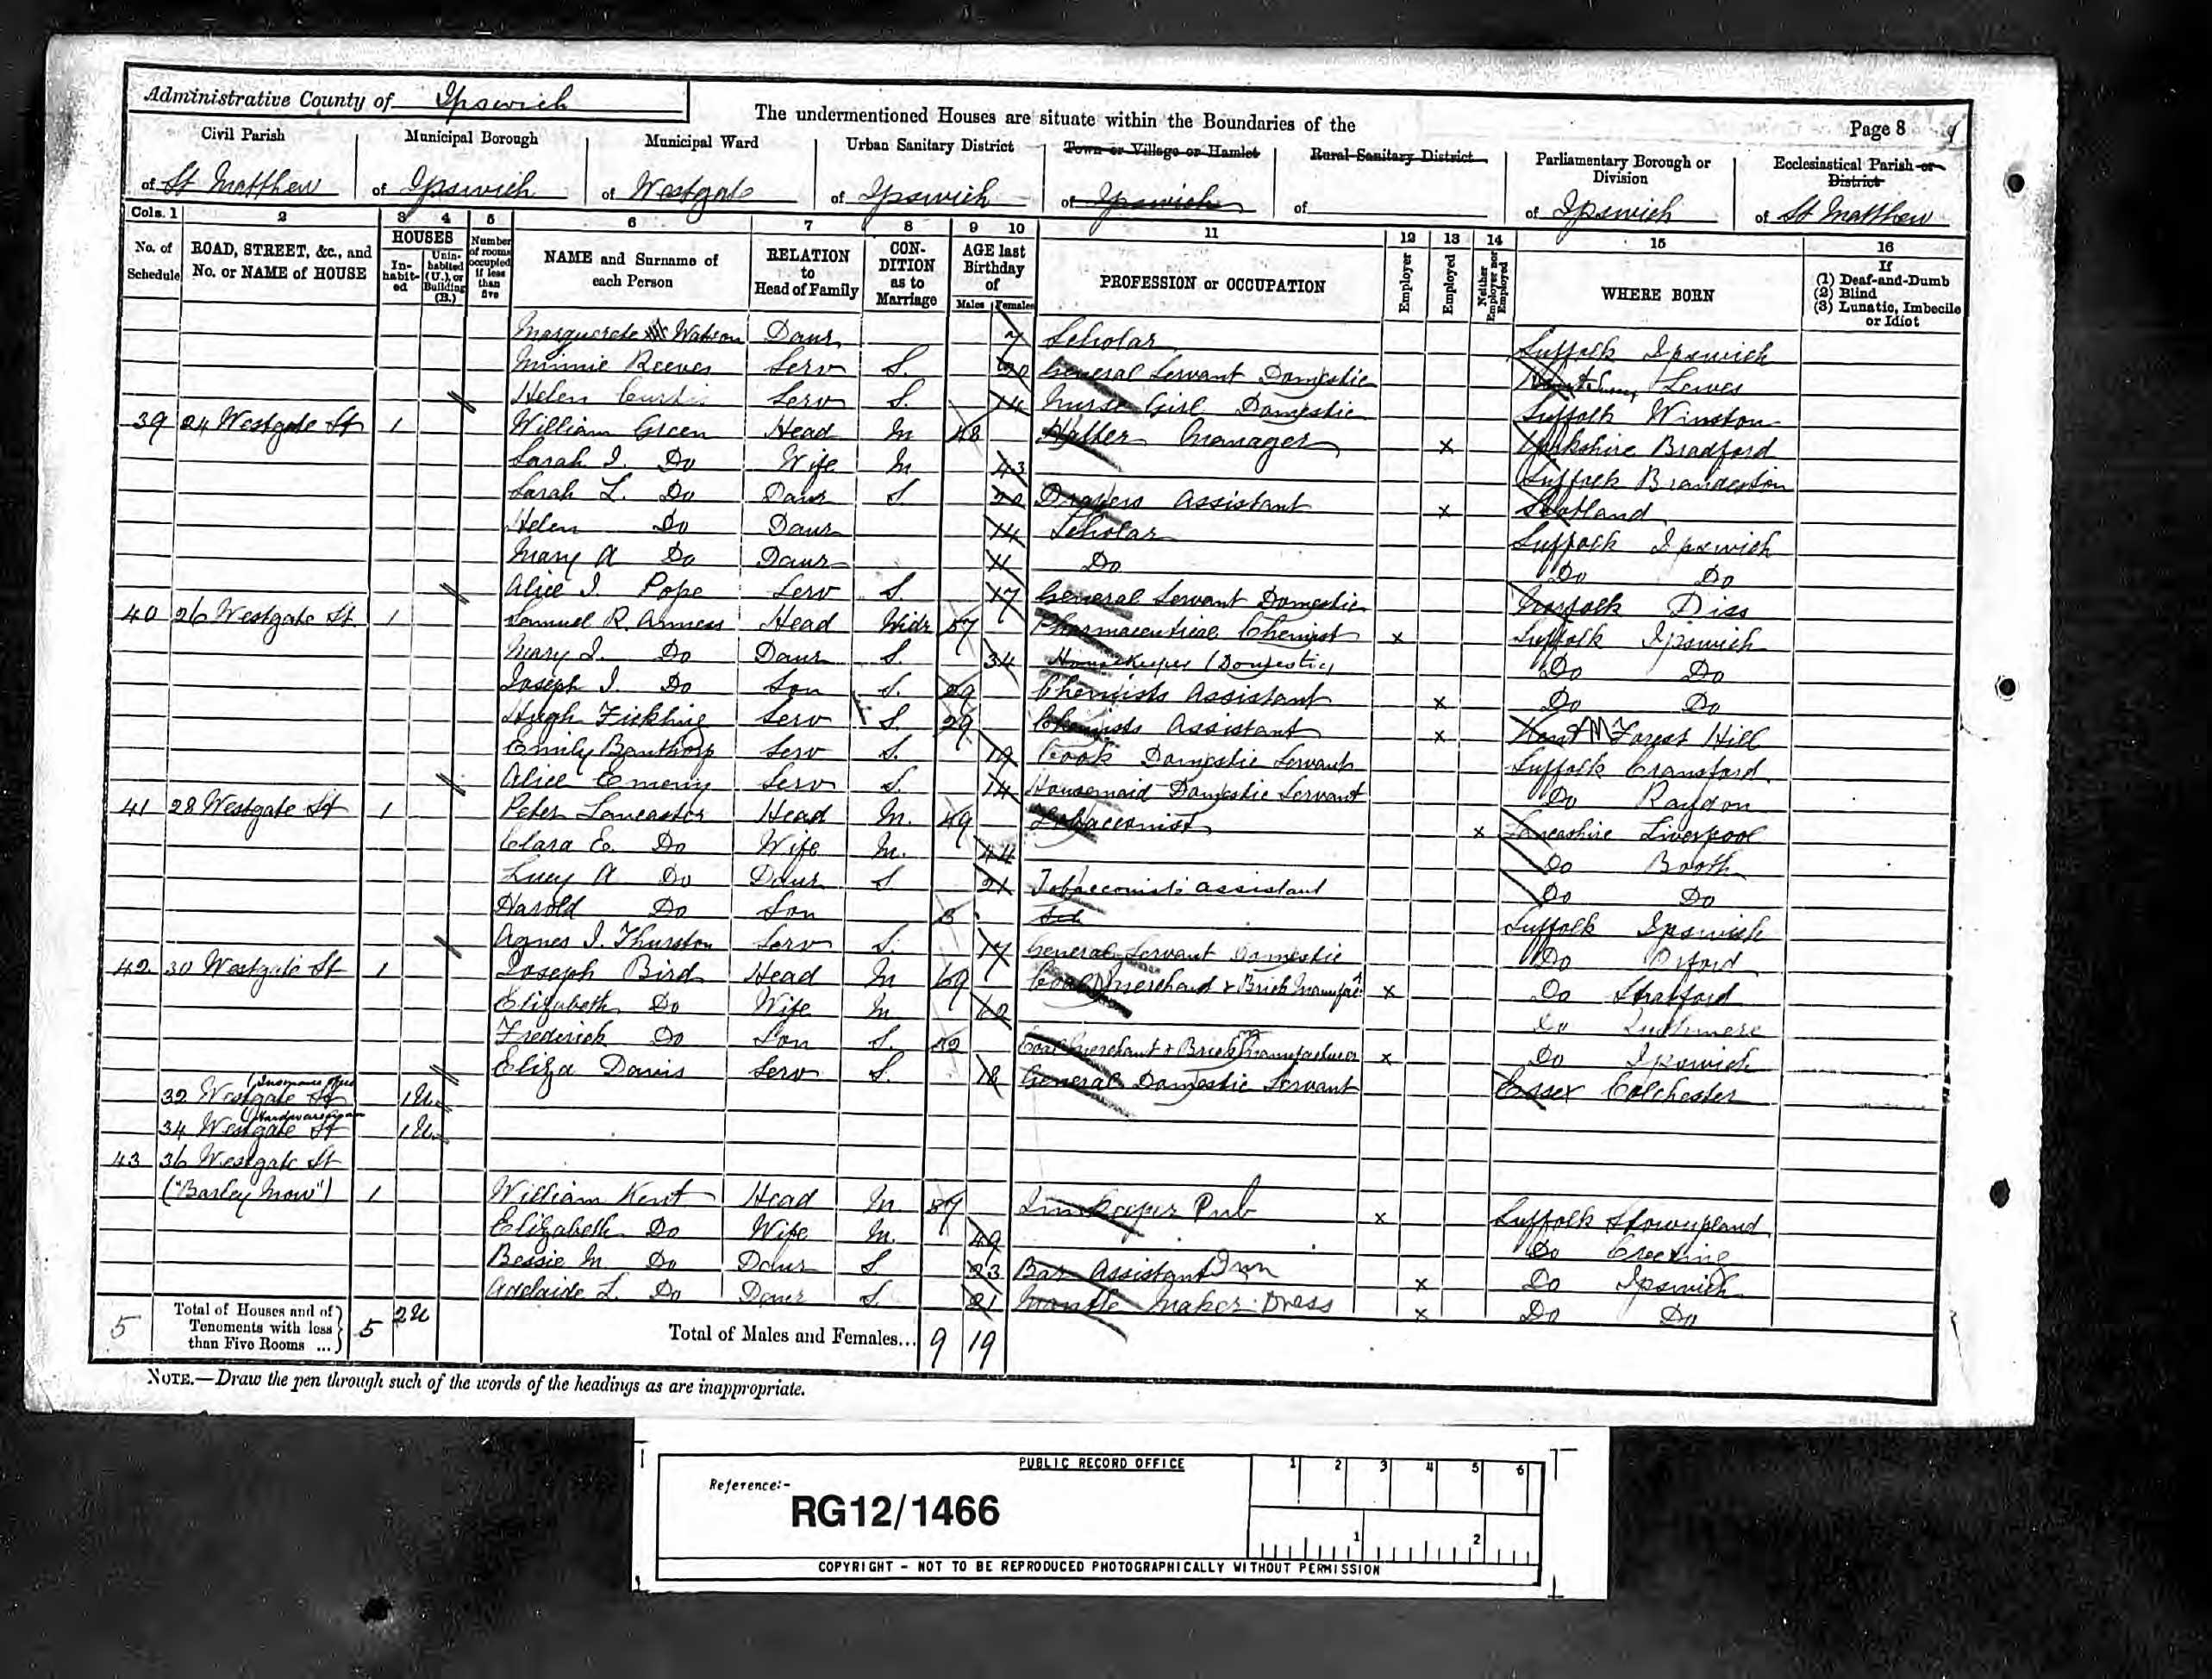 Administrative County of Ipswich
The undermentioned Houses are situate within the Boundaries of the
Page 8
Civil Parish Municipal Borough Municipal Ward Urban Sanitary District Town or Village or Hamlet Rural Sanitary District Parliamentary Borough or Division Ecclesiastical Parish or District
of St Matthew of Ipswich of Westgate of Ipswich of Ipswich of of Ipswich of St Matthew
Cols. 1 2 3 4 5 6 7 8 9 10 11 12 13 14 15 16
No. of Schedule ROAD, STREET, &c., and No. or NAME of HOUSE HOUSES Inhabited Uninhabited (U.), or Building (B.) Number of rooms occupied if less than five NAME and Surname of each Person RELATION to Head of Family CONDITION as to Marriage AGE last Birthday of Males Females PROFESSION or OCCUPATION Employer Employed Neither Employer nor Employed WHERE BORN If (1) Deaf-and-Dumb (2) Blind (3) Lunatic, Imbecile or Idiot
Watson Daur 7 Scholar Suffolk Ipswich
Minnie Reeves Serv S. 20 General Servant Domestic Lewes
Helen Serv S. 14 Nurse Girl Domestic Suffolk Winston
39 24 Westgate St 1 William Green Head M 48 Hatter Manager x Yorkshire Bradford
Sarah I. Do Wife M 43 Suffolk Brandeston
Sarah L. Do Daur S. Drapers Assistant x Scotland
Helen Do Daur 14 Scholar Suffolk Ipswich
Mary A Do Daur 11 Do Do Do
Alice I. Pope Serv S 17 General Servant Domestic Norfolk Diss
40 26 Westgate St. 1 Samuel R. Anness Head Widr 57 Pharmaceutical Chemist x Suffolk Ipswich
Mary I. Do Daur S. 34 Housekeeper (Domestic) Do Do
Joseph I. Do Son S. 29 Chemists Assistant x Do Do
Hugh Fickling Serv S. 29 Chemists Assistant x Kent Forest Hill
Emily Banthorp Serv S. 19 Cook Domestic Servant Suffolk Cransford
Alice Emeny Serv S. 14 Housemaid Domestic Servant Do Raydon
41 28 Westgate St 1 Peter Lancaster Head M. 49 Tobacconist x Lancashire Liverpool
Clara E. Do Wife M. 44 Do Bootle
Lucy A Do Daur S 21 Tobacconists Assistant Do Do
Harold Do Son Suffolk Ipswich
Agnes I. Thurston Serv S. 17 General Servant Domestic Do Orford
42 30 Westgate St 1 Joseph Bird Head M 69 Coal Merchant & Brick Manufac x Do Stratford
Elizabeth Do Wife M Do
Frederick Do Son S. Coal Merchant & Brick Manufacturer x Do Ipswich
Eliza Davis Serv S. 18 General Domestic Servant Essex Colchester
32 Westgate St 1 U
34 Westgate St 1 U
43 36 Westgate St
("Barley Mow") 1 William Kent Head M 57 Innkeeper Pub x Suffolk Stowupland
Elizabeth Do Wife M. 49 Do Creeting
Bessie M Do Daur S 23 Bar Assistant Inn x Do Ipswich
Adelaide L. Do Daur S. 21 Mantle Maker Dress x Do Do
5 Total of Houses and of Tenements with less than Five Rooms ... 5 2U Total of Males and Females... 9 19
NOTE.—Draw the pen through such of the words of the headings as are inappropriate.
PUBLIC RECORD OFFICE 1 2 3 4 5 6
Reference:-
RG12/1466
1 2
COPYRIGHT - NOT TO BE REPRODUCED PHOTOGRAPHICALLY WITHOUT PERMISSION